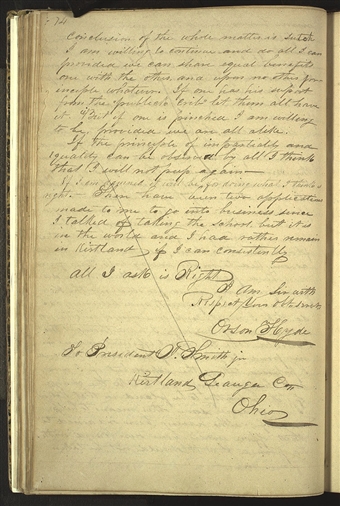 74
conclusion of the whole matter is such
I am willing to continue and do all I can
provided we can share equal benefits
one with the other, and upon no other prin-
ciple whatever. If one has his support
from the "publick Crib" let them all have
it. But if one is pinched I am willing
to be, provided we are all alike.
If the principle of impartiality and
equality can be observed by all I think
that I will not peep again—
If I am damned it will be for doing what I think is
right— There have been two applications
made to me to go into business since
I talked of taking the school, but it is
in the world and I had rather remain
in Kirtland if I can consistently
all I ask is Right
I Am Sir with
Respect Your Obt. Servt.
Orson Hyde
To President J. Smith jr
Kirtland Geauga Co.
Ohio